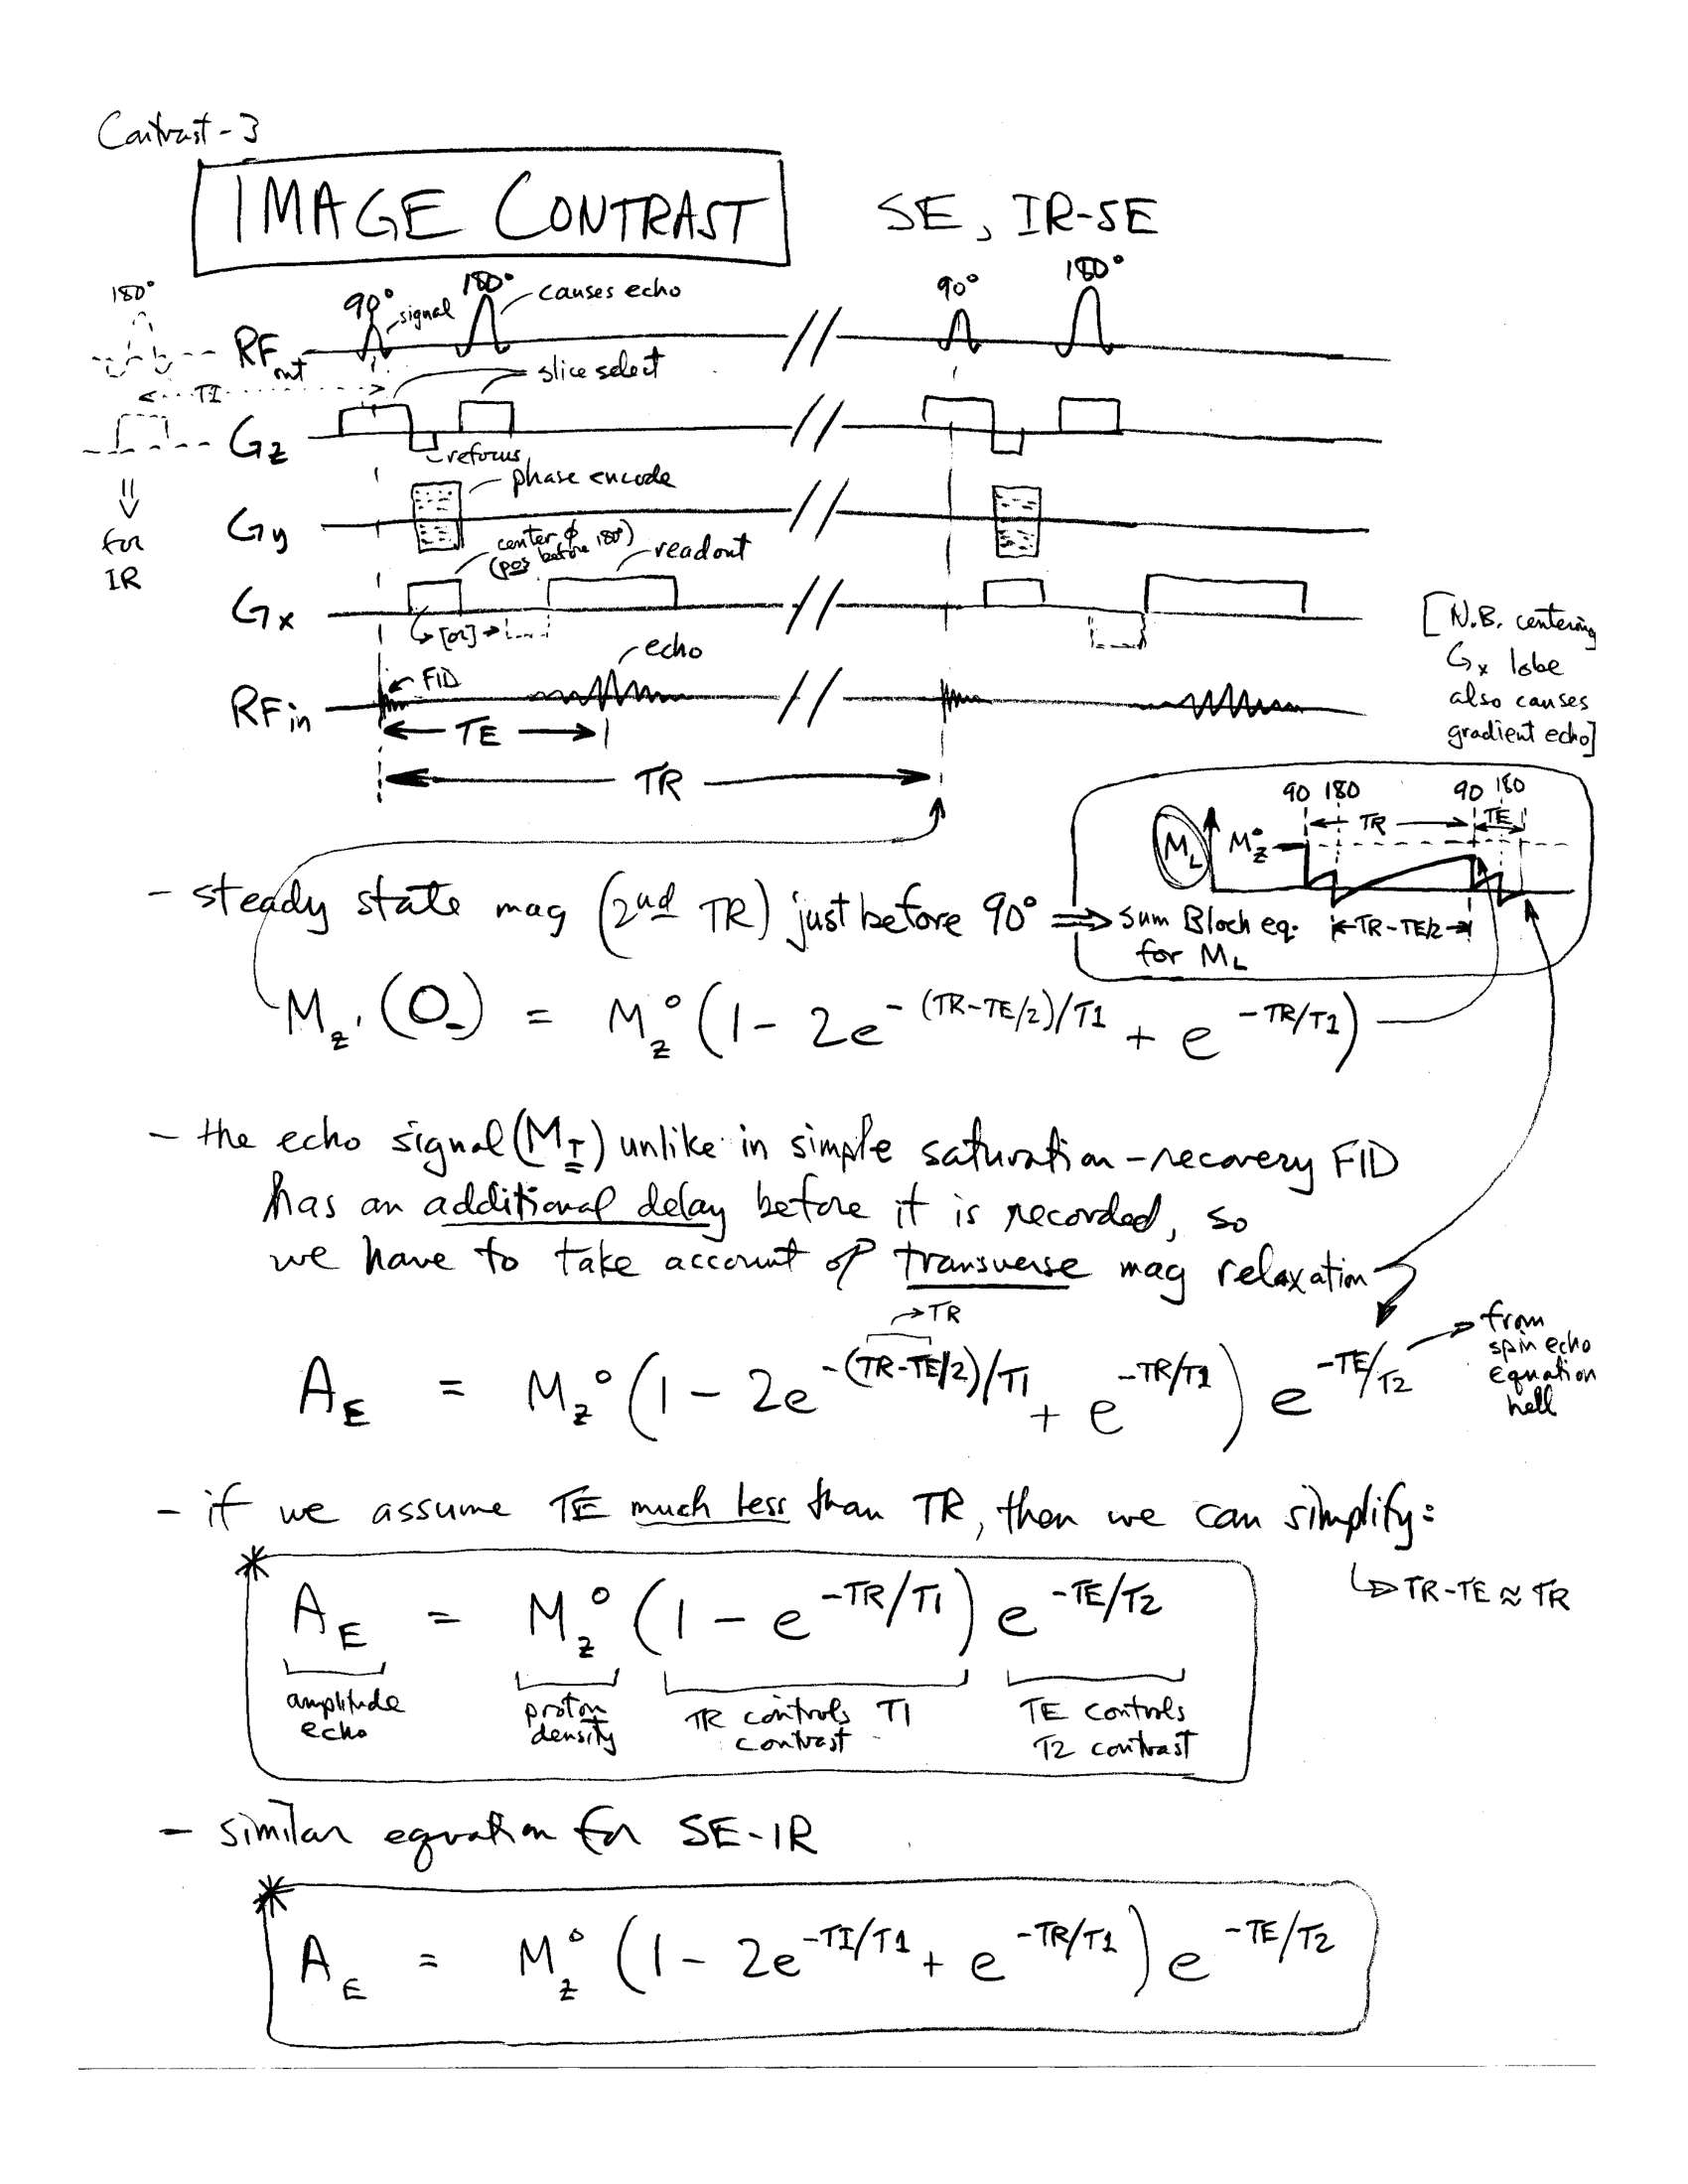 Contrast-3
IMAGE CONTRAST
SE, IR-SE
180°
90°
signal
180°
causes echo
90°
180°
RF out
TI
slice select
Gz
refocus
phase encode
⇓
for
IR
Gy
center φ
(pos before 180°)
readout
Gx
[or]
[N.B. centering
Gx lobe
also causes
gradient echo]
echo
FID
RF in
TE
TR
90 180 90 180
TR TE
M_L M_z°
TR-TE/2
- steady state mag (2nd TR) just before 90° ⇒ Sum Bloch eq.
for M_L
M_z'(0_-) = M_z°(1 - 2e^-(TR-TE/2)/T1 + e^-TR/T1)
- the echo signal (M_T) unlike in simple saturation-recovery FID
has an additional delay before it is recorded, so
we have to take account of transverse mag relaxation
→TR
A_E = M_z°(1 - 2e^-(TR-TE/2)/T1 + e^-TR/T1) e^-TE/T2
from
spin echo
equation
hell
- if we assume TE much less than TR, then we can simplify:
↳ TR-TE ≈ TR
* A_E = M_z°(1 - e^-TR/T1) e^-TE/T2
amplitude
echo
proton
density
TR controls T1
contrast
TE controls
T2 contrast
- similar equation for SE-IR
* A_E = M_z°(1 - 2e^-TI/T1 + e^-TR/T1) e^-TE/T2